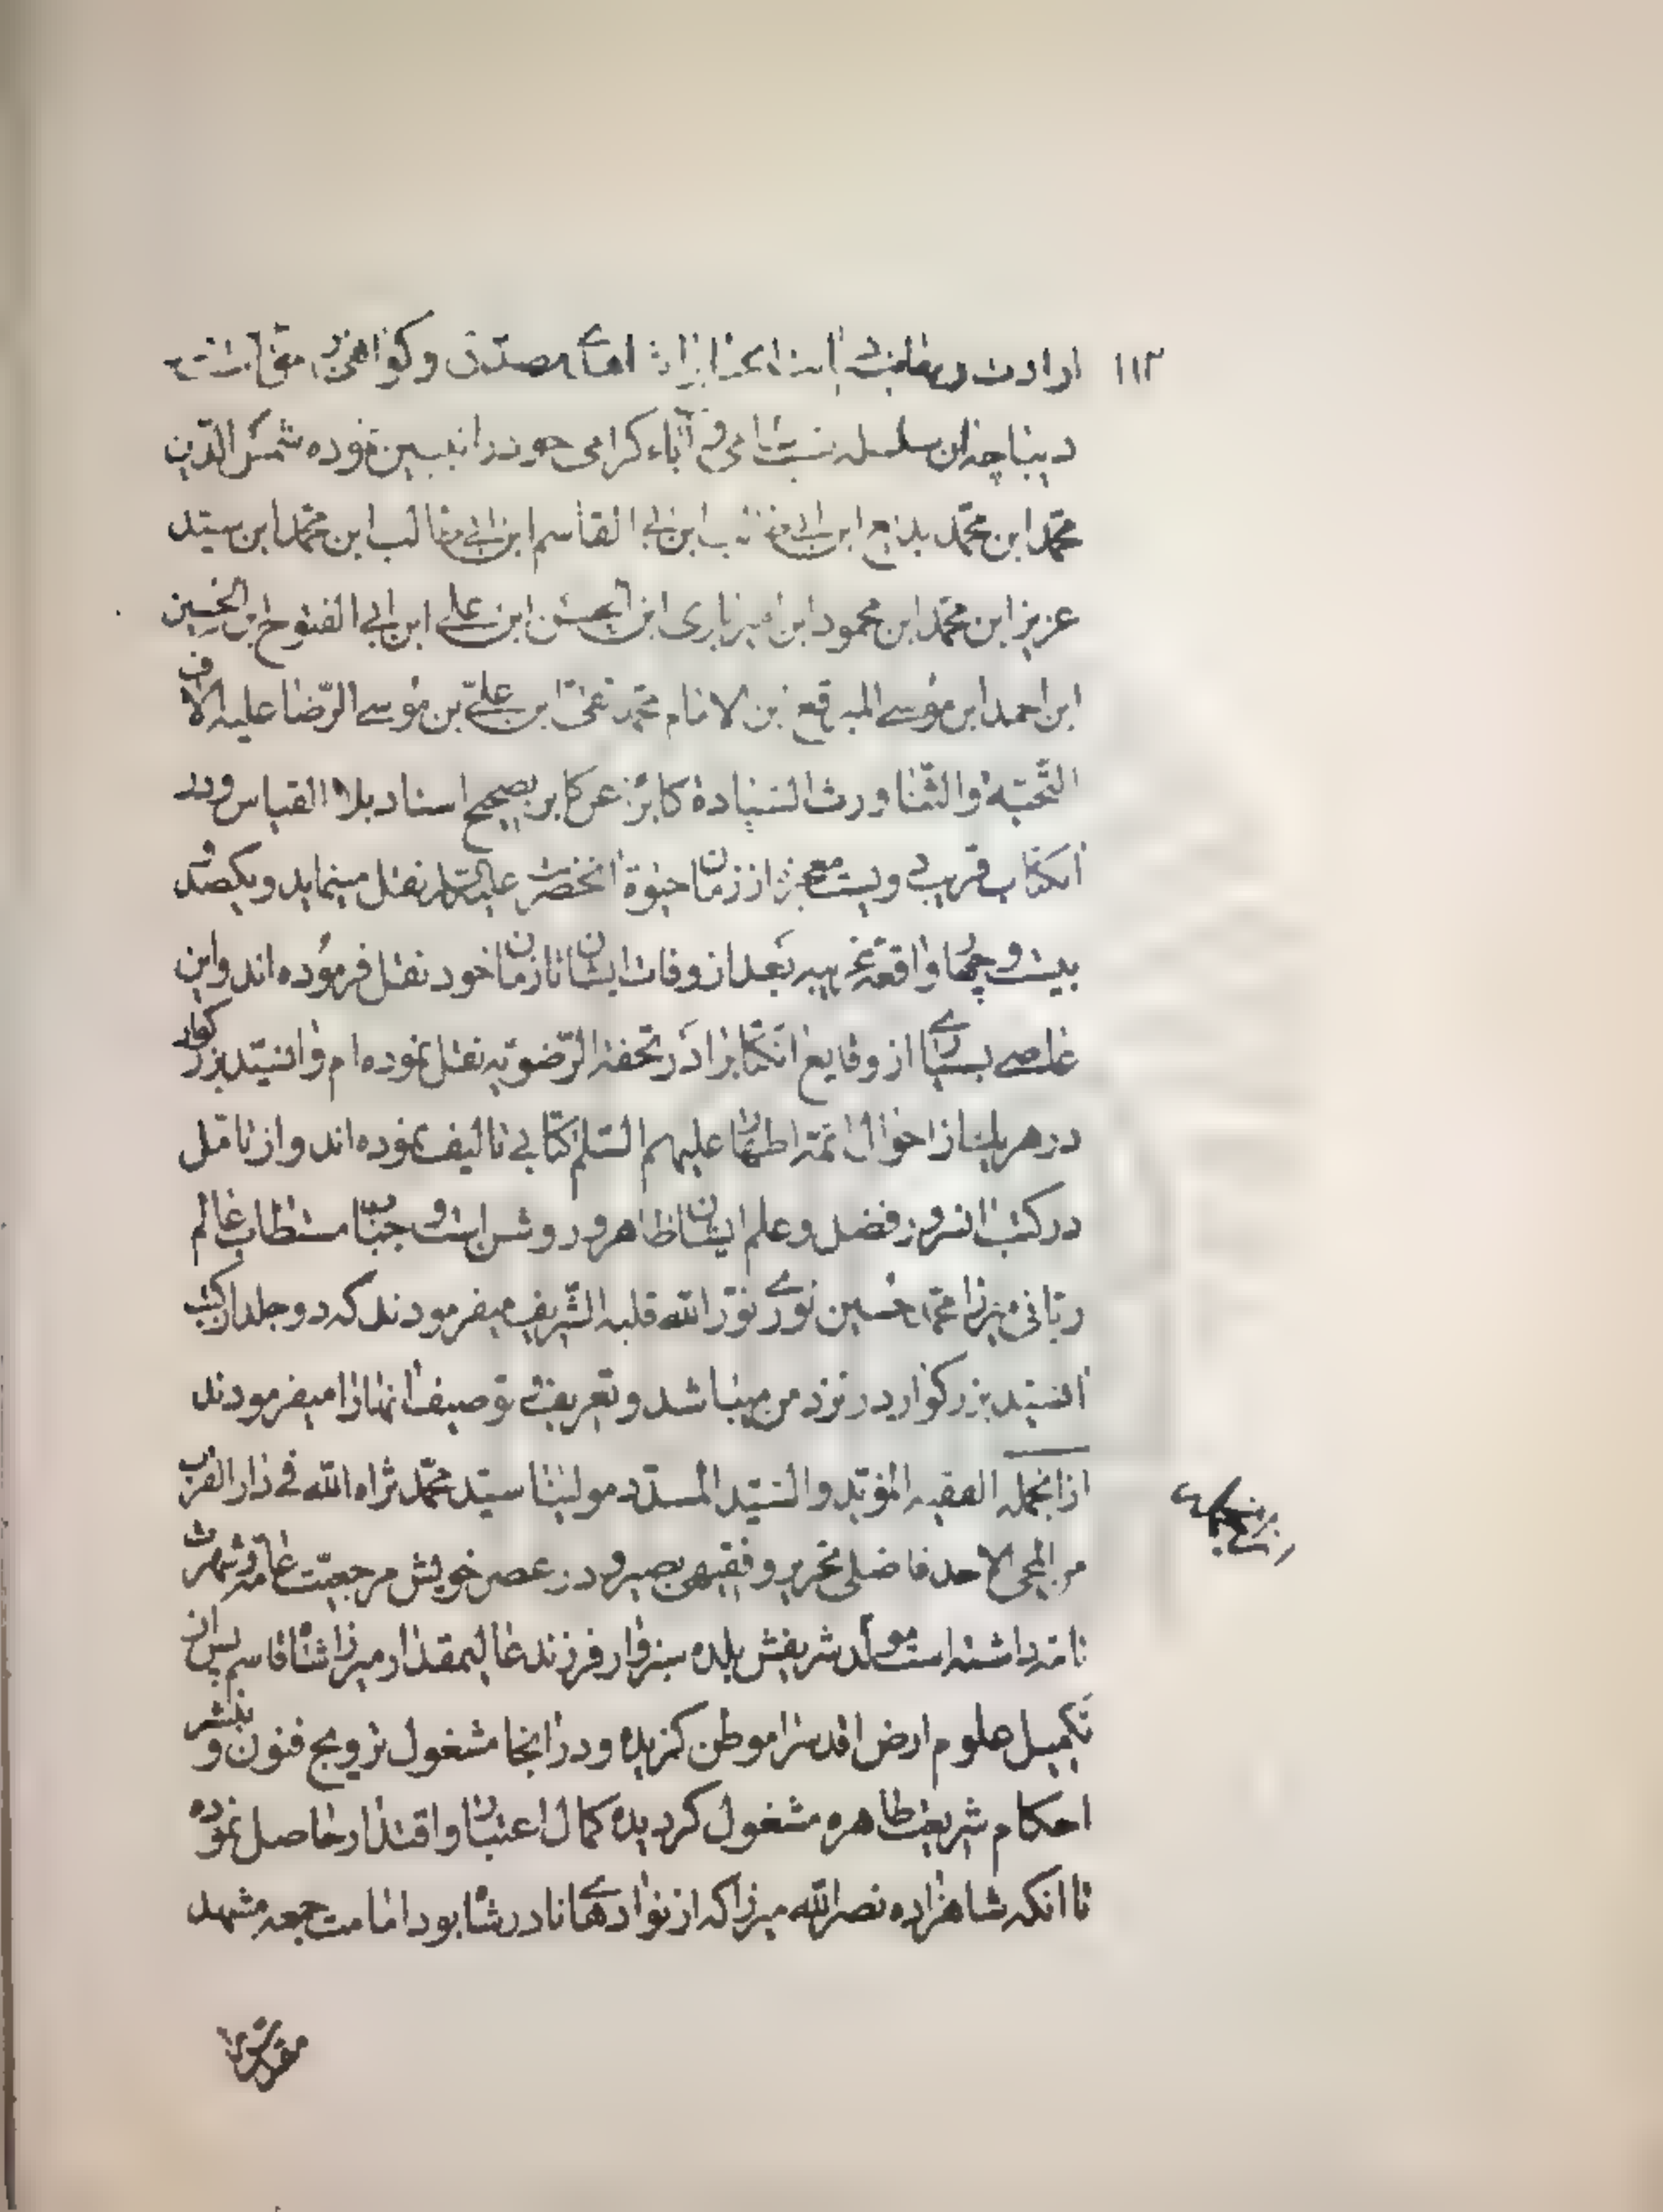 ۱۱۲
دیباچه ان سلسله نسب سامی و آباء کرامی خود را تبیین نموده شمس الدین
محمد ابن محمد بدیع ابن ابی طالب ابن ابی القاسم ابن ابی طالب ابن محمد ابن سید
عزیز ابن محمد ابن محمود ابن امیر یاری ابن ابی حسن ابن علی ابن ابی الفتوح ابن الحسین
ابن احمد ابن موسی المبرقع بن الامام محمد تقی ابن علی بن موسی الرضا علیه الاف
التحیة و الثنا ورث السیادة کابر عن کابر بصحیح اسناد بلا القیاس و در
انکتاب قریب دویست معجزه از زمان حیوة انحضرت علیه السلام نقل مینماید و یکصد و
بیست و چهار واقعه غریبه بعد از وفات ایشان تا زمان خود نقل فرموده اند و این
عاصی بسیاری از وقایع انکتاب را در تحفة الرضویه نقل نموده ام و السید بزرکوار
در هر یک از احوال ائمه اطهار علیهم السلام کتابی تالیف نموده اند و از تامل
در کتب انسرور فضل و علم ایشان ظاهر و روشن است و جناب مستطاب عالم
ربانی میرزا محمد حسین نوری نور الله قلبه الشریف میفرمودند که دو جلد از کتب
السید بزرکوار در نزد من میباشد و تعریف و توصیف انها را میفرمودند
از انجمله الفقیه المؤید و السید المسدد مولینا سید محمد ثراه الله فی دار القرب
من الحی الاحد فاضلی نحریر و فقیهی بصیر و در عصر خویش مرجعیت عامه و شهرت
تامه داشته است مولد شریفش بلده سبزوار فرزند عالیمقدار میرزا شاه قاسم پس از
تکمیل علوم ارض اقدس را موطن کزیده و در انجا مشغول ترویج فنون و نشر
احکام شریعت طاهره مشغول کردیده کمال اعتبار و اقتدار حاصل نموده
تا انکه شاهزاده نصر الله میرزا که از نوادهای نادر شاه بود امامت جمعه مشهد